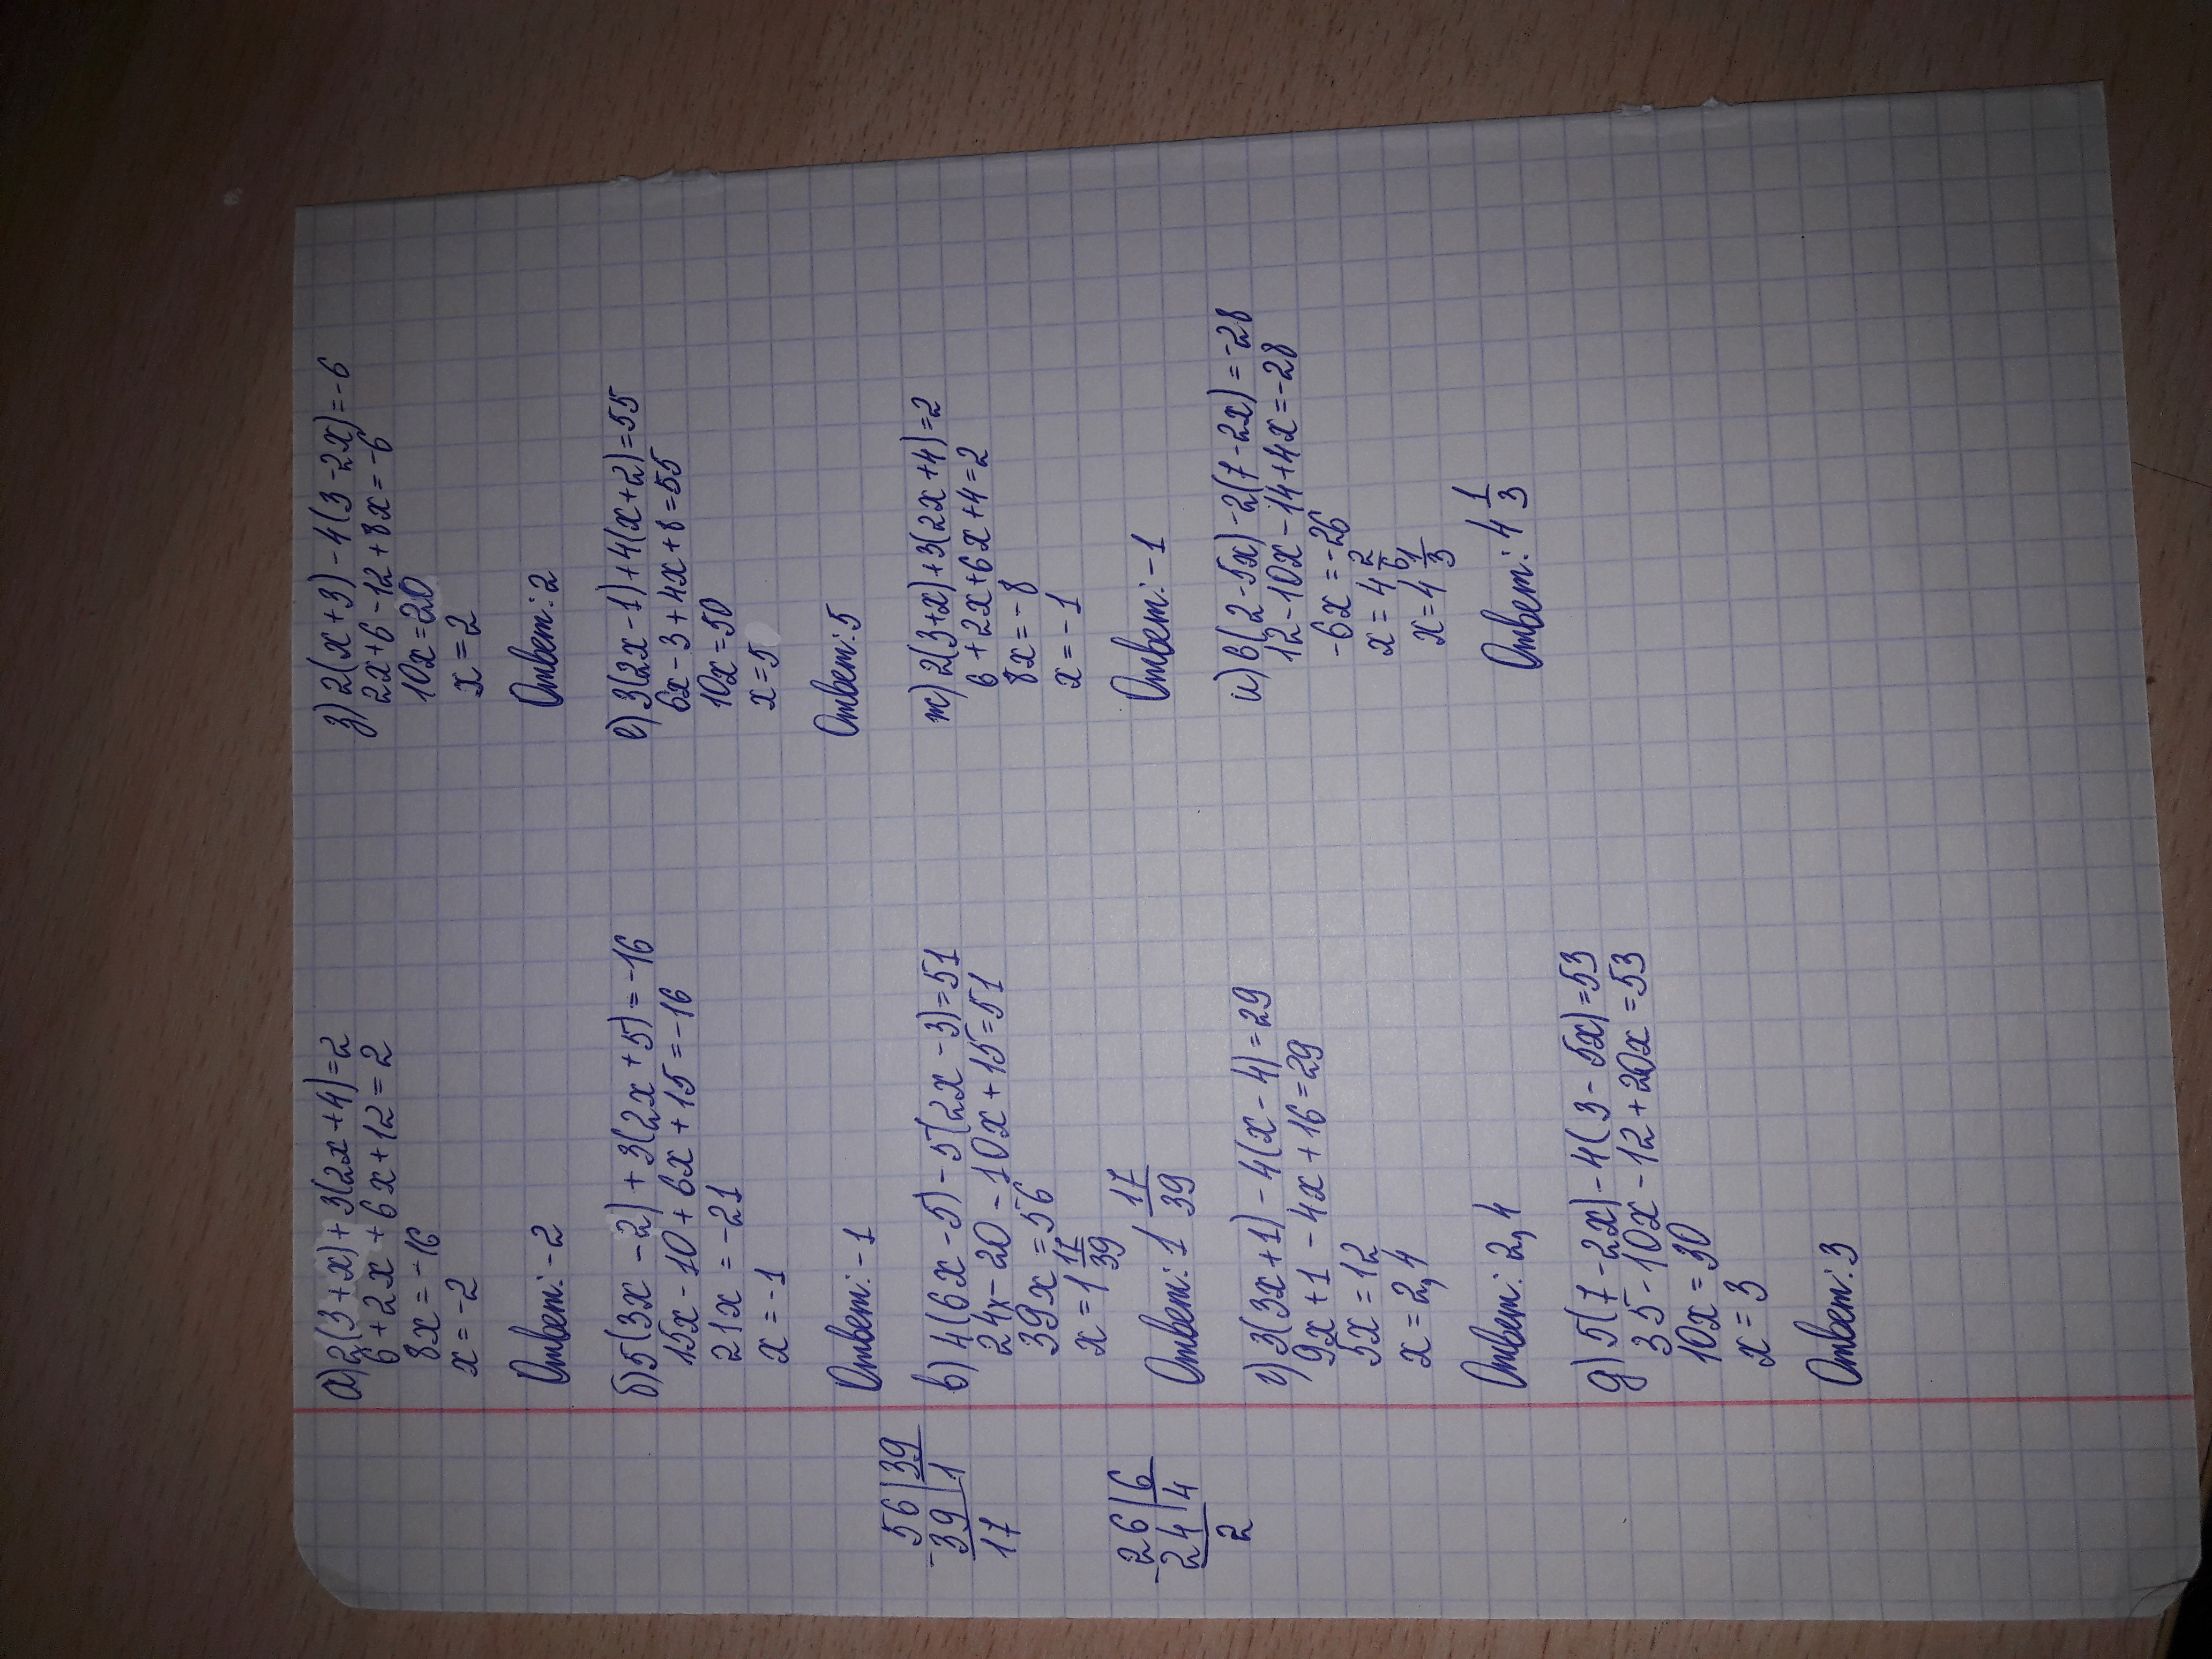 а) 2(3+x)+3(2x+4)=2
6+2x+6x+12=2
8x=-16
x=-2
Ответ: -2
б) 5(3x-2)+3(2x+5)=-16
15x-10+6x+15=-16
21x=-21
x=-1
Ответ: -1
56 | 39
-39 | 1
17
в) 4(6x-5)-5(2x-3)=51
24x-20-10x+15=51
39x=56
x=1 17/39
Ответ: 1 17/39
-26 | 6
24 | 4
2
г) 3(3x+1)-4(x-4)=29
9x+1-4x+16=29
5x=12
x=2,4
Ответ: 2,4
д) 5(7-2x)-4(3-5x)=53
35-10x-12+20x=53
10x=30
x=3
Ответ: 3
з) 2(x+3)-4(3-2x)=-6
2x+6-12+8x=-6
10x=20
x=2
Ответ: 2
е) 3(2x-1)+4(x+2)=55
6x-3+4x+8=55
10x=50
x=5
Ответ: 5
ж) 2(3+x)+3(2x+4)=2
6+2x+6x+4=2
8x=-8
x=-1
Ответ: -1
и) 6(2-5x)-2(7-2x)=-28
12-10x-14+4x=-28
-6x=-26
x=4 2/6
x=4 1/3
Ответ: 4 1/3